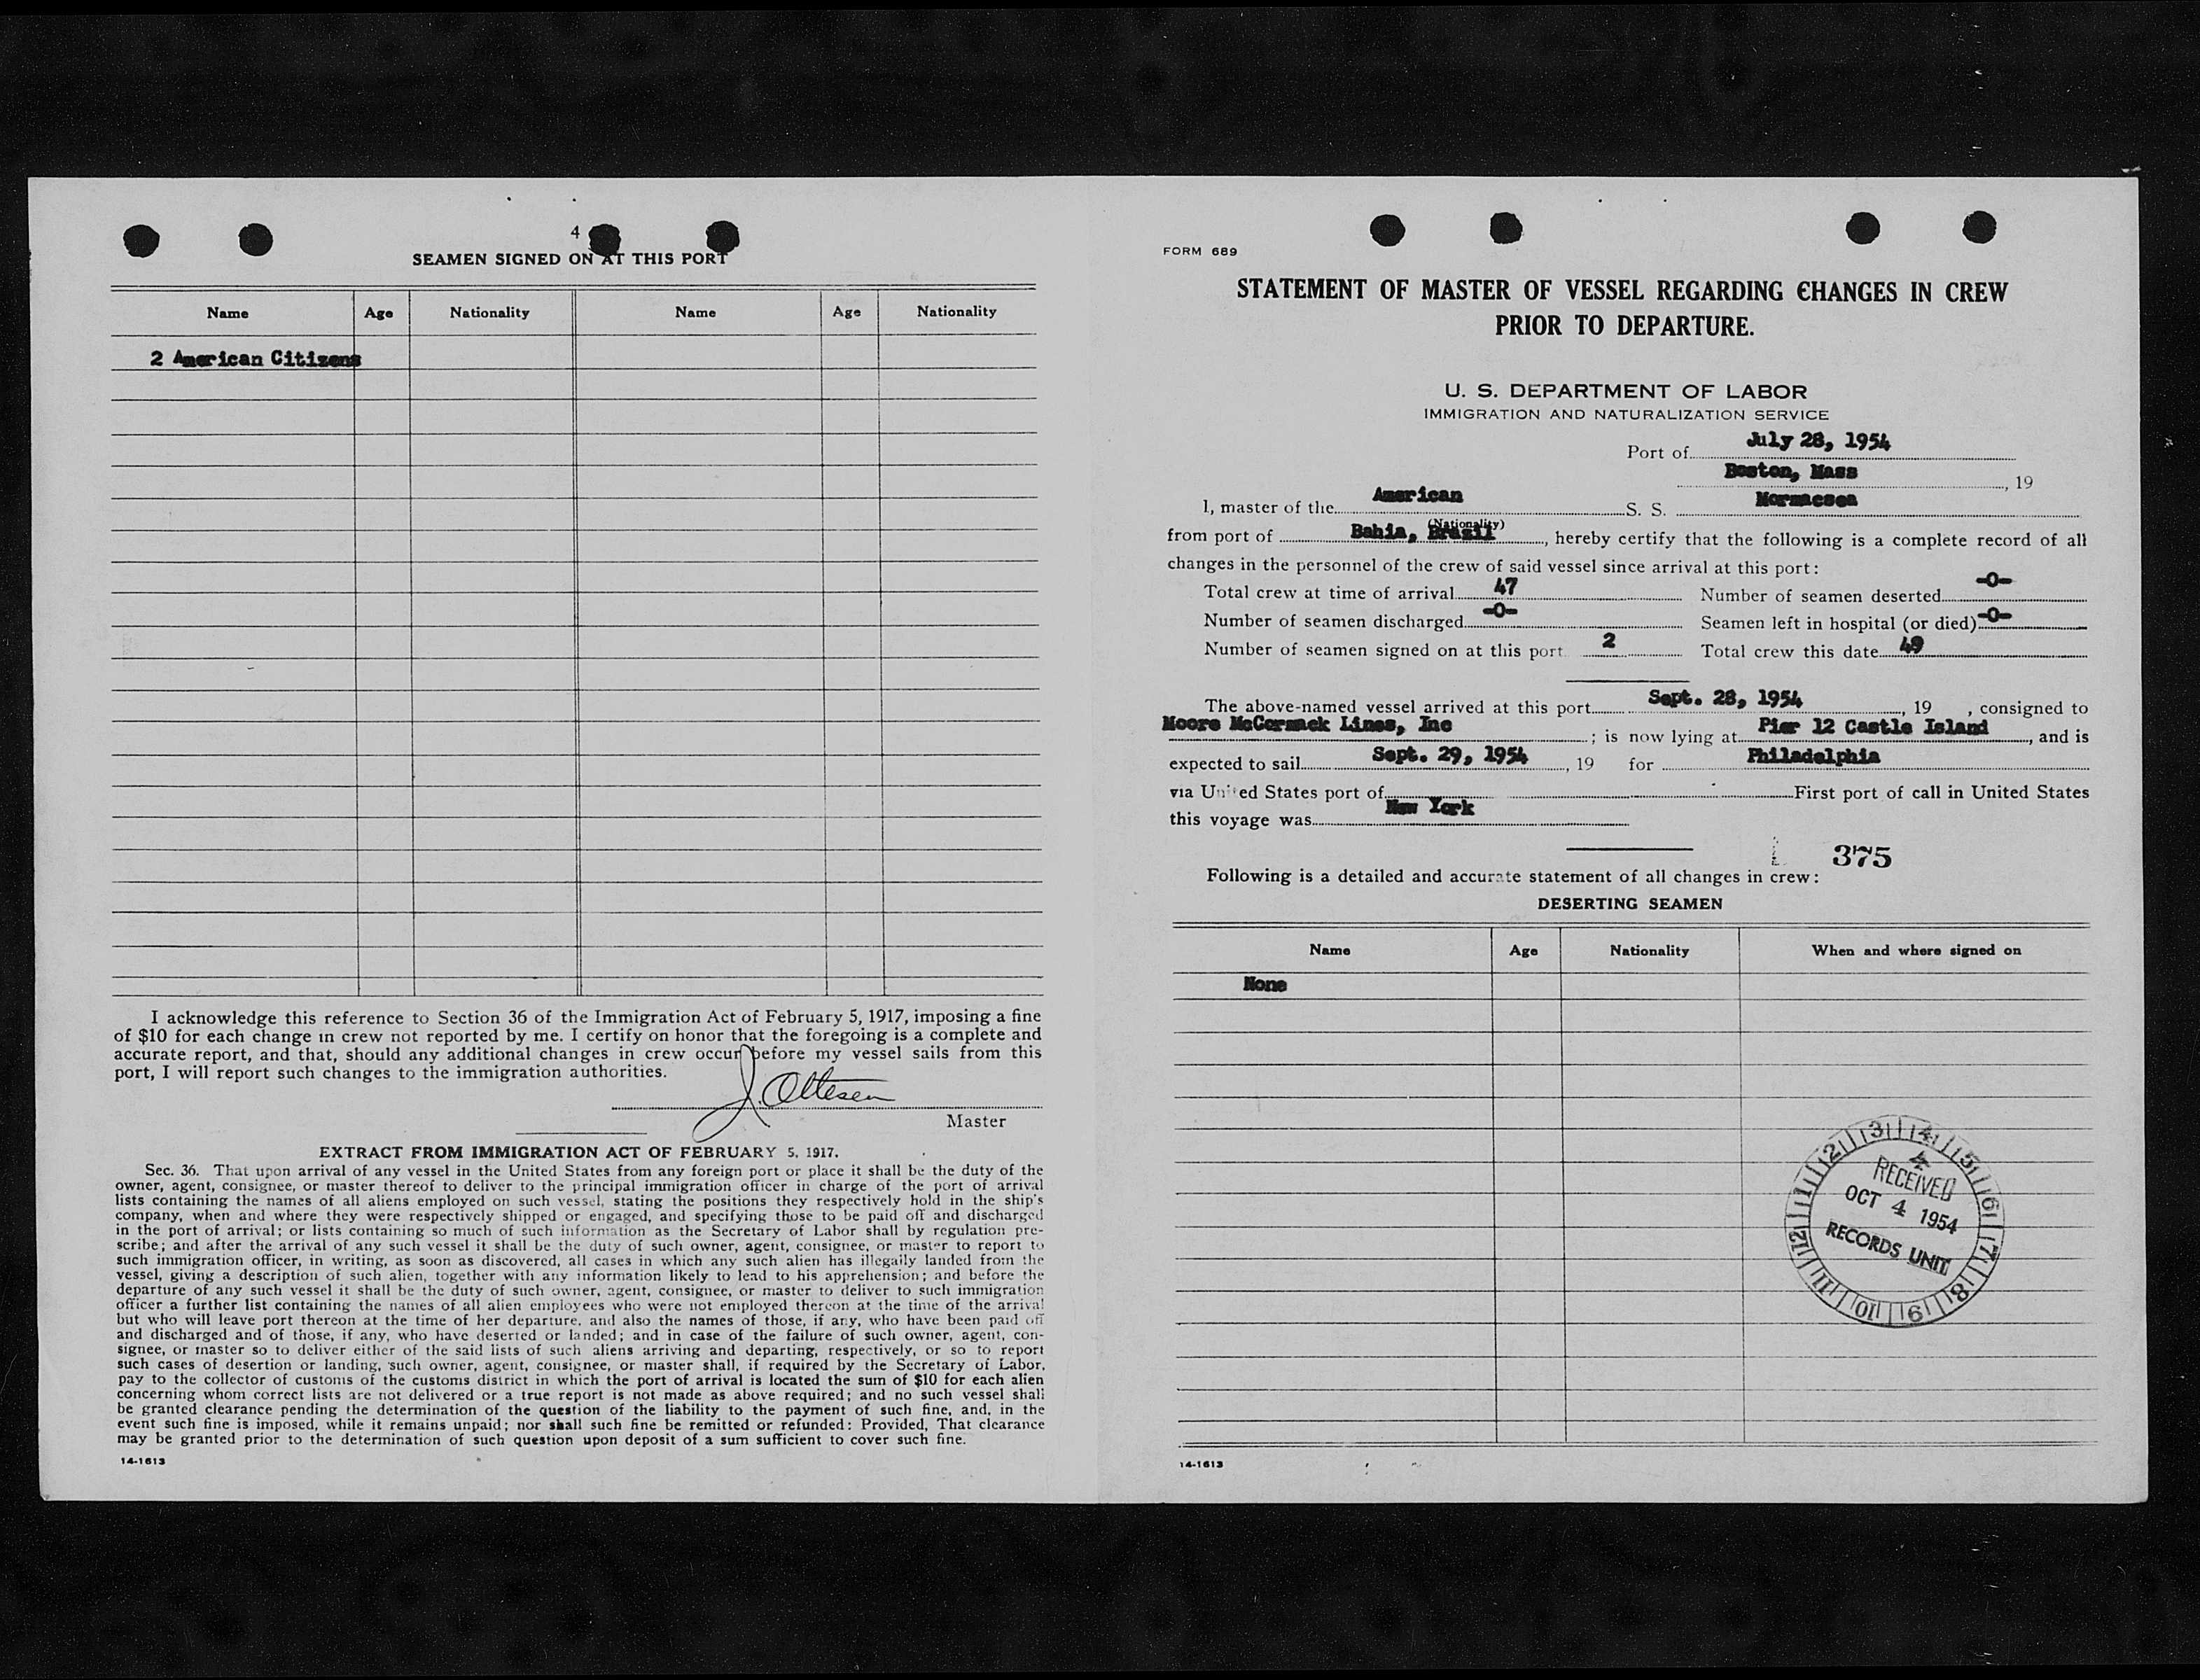 4
SEAMEN SIGNED ON AT THIS PORT
Name Age Nationality Name Age Nationality
2 American Citizens
I acknowledge this reference to Section 36 of the Immigration Act of February 5, 1917, imposing a fine
of $10 for each change in crew not reported by me. I certify on honor that the foregoing is a complete and
accurate report, and that, should any additional changes in crew occur before my vessel sails from this
port, I will report such changes to the immigration authorities.
J. Ottesen
Master
EXTRACT FROM IMMIGRATION ACT OF FEBRUARY 5, 1917.
Sec. 36. That upon arrival of any vessel in the United States from any foreign port or place it shall be the duty of the
owner, agent, consignee, or master thereof to deliver to the principal immigration officer in charge of the port of arrival
lists containing the names of all aliens employed on such vessel, stating the positions they respectively hold in the ship's
company, when and where they were respectively shipped or engaged, and specifying those to be paid off and discharged
in the port of arrival; or lists containing so much of such information as the Secretary of Labor shall by regulation pre-
scribe; and after the arrival of any such vessel it shall be the duty of such owner, agent, consignee, or master to report to
such immigration officer, in writing, as soon as discovered, all cases in which any such alien has illegally landed from the
vessel, giving a description of such alien, together with any information likely to lead to his apprehension; and before the
departure of any such vessel it shall be the duty of such owner, agent, consignee, or master to deliver to such immigration
officer a further list containing the names of all alien employees who were not employed thereon at the time of the arrival
but who will leave port thereon at the time of her departure, and also the names of those, if any, who have been paid off
and discharged and of those, if any, who have deserted or landed; and in case of the failure of such owner, agent, con-
signee, or master so to deliver either of the said lists of such aliens arriving and departing, respectively, or so to report
such cases of desertion or landing, such owner, agent, consignee, or master shall, if required by the Secretary of Labor,
pay to the collector of customs of the customs district in which the port of arrival is located the sum of $10 for each alien
concerning whom correct lists are not delivered or a true report is not made as above required; and no such vessel shall
be granted clearance pending the determination of the question of the liability to the payment of such fine, and, in the
event such fine is imposed, while it remains unpaid; nor shall such fine be remitted or refunded: Provided, That clearance
may be granted prior to the determination of such question upon deposit of a sum sufficient to cover such fine.
14-1613
FORM 689
STATEMENT OF MASTER OF VESSEL REGARDING CHANGES IN CREW
PRIOR TO DEPARTURE.
U. S. DEPARTMENT OF LABOR
IMMIGRATION AND NATURALIZATION SERVICE
Port of July 28, 1954
Boston, Mass , 19
I, master of the American S. S. Mormacsea
(Nationality)
from port of Bahia, Brazil, hereby certify that the following is a complete record of all
changes in the personnel of the crew of said vessel since arrival at this port:
Total crew at time of arrival 47 Number of seamen deserted -0-
Number of seamen discharged -0- Seamen left in hospital (or died) -0-
Number of seamen signed on at this port 2 Total crew this date 49
The above-named vessel arrived at this port Sept. 28, 1954, 19 , consigned to
Moore McCormack Lines, Inc; is now lying at Pier 12 Castle Island, and is
expected to sail Sept. 29, 1954, 19 for Philadelphia
via United States port of First port of call in United States
this voyage was New York
375
Following is a detailed and accurate statement of all changes in crew:
DESERTING SEAMEN
Name Age Nationality When and where signed on
None
12 1 2 3 4 5 6 7 8 9 10 11
RECEIVED
OCT 4 1954
RECORDS UNIT
14-1613